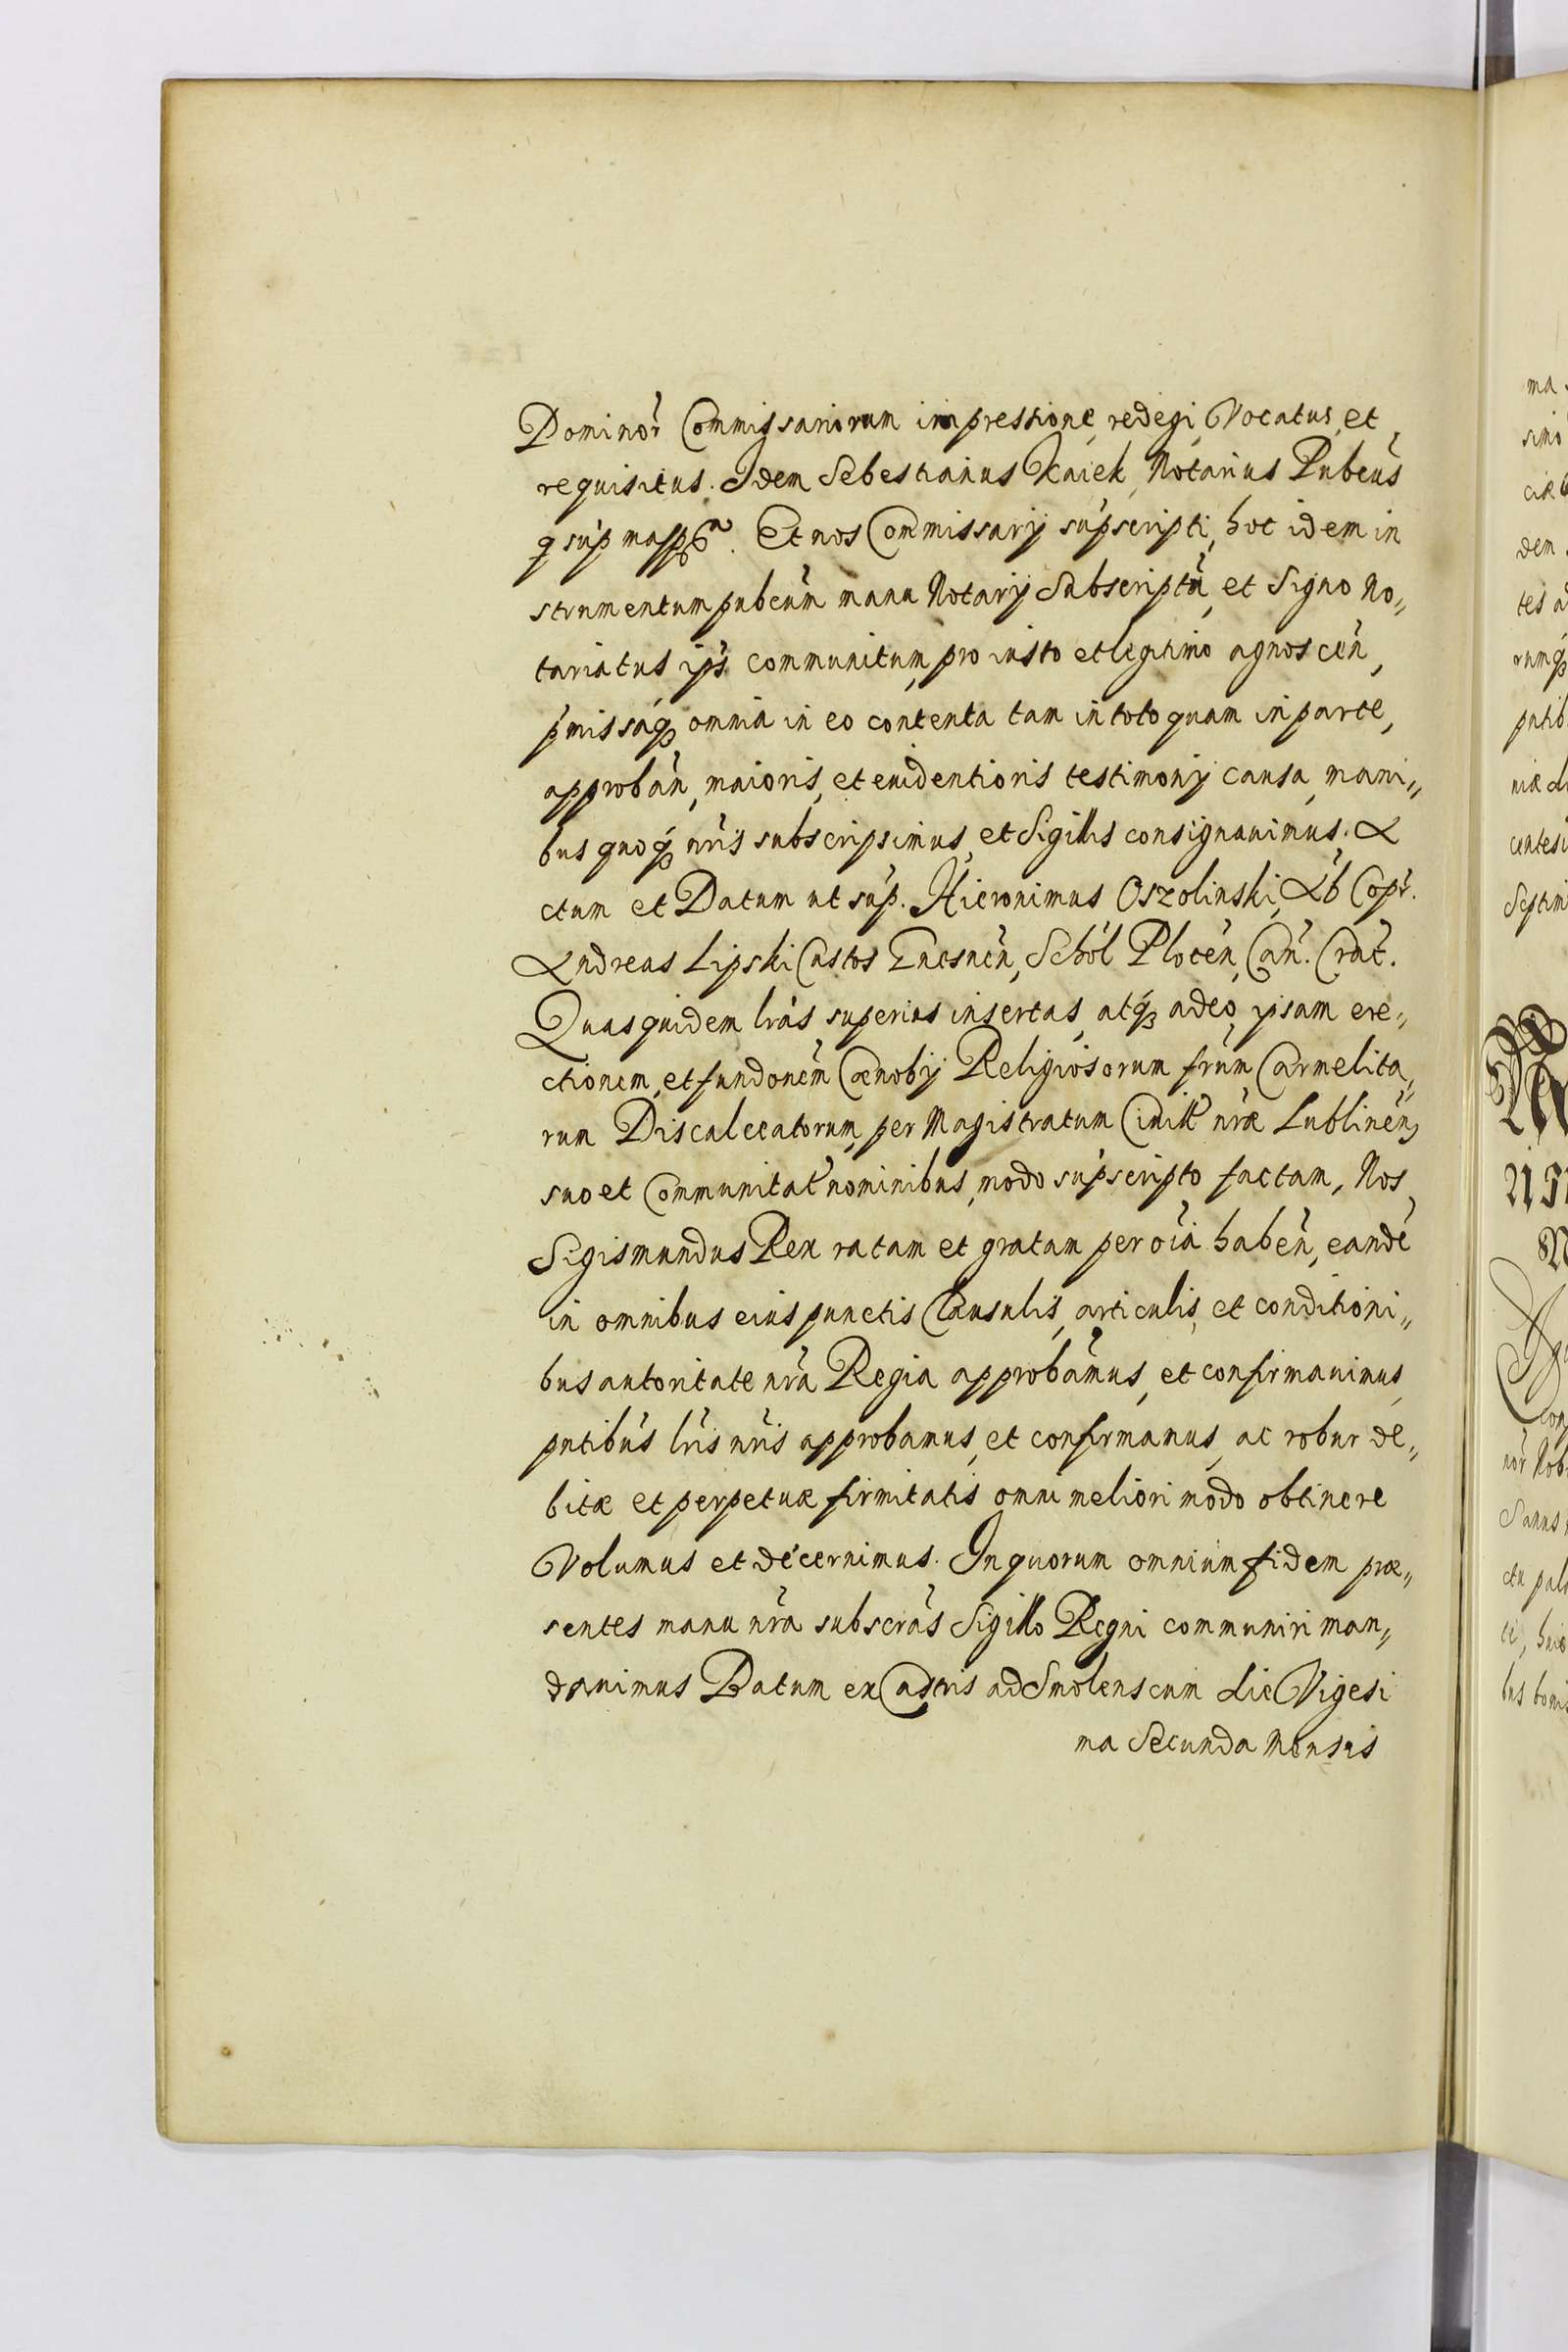 Dominor̃ Commissariorum impressione, redegi, Vocatus, et
requisitus. Idem Sebestianus Kaiek, Notarius Pubcus̃
q sup̃ Et nos Commissarij sup̃scripti, hoc idem in
strumentum pubcum̃ manu Notarij Subscriptũ, et Signo No„
tariatus ips̃ communitum, pro iusto et legitimo agnosceñ,
p̃missaq₃ omnia in eo contenta tam in toto quam in parte,
approbañ, maioris, et euidentioris testimonij causa, mani„
bus quoq₃ nr̃is subscripsimus, et Sigillis consignauimus. A
ctum et Datum ut sup̃. Hieronimus Oszolinski, Ab Copr̃.
Andreas Lipski Custos Gnesneñ, Schol̃ Ploceñ, Cañ. Crac̃.
Quasquidem lrãs superius insertas, atq₃ adeo ipsam ere„
ctionem, et fundonem̃ Cænobij Religiosorum frũm Carmelita„
rum Discalceatorum, per Magistratum Ciuit̃ nr̃æ Lublineñ,
suo et Communitat̃ nominibus, modo sup̃scripto factam, Nos
Sigismundus Rex ratam et gratam per oĩa habeñ, eandẽ
in omnibus eius punctis Clausulis, articulis, et conditioni„
bus autoritate nr̃a Regia approbãmus, et confirmauimus,
pntibus̃ lr̃is nr̃is approbamus, et confirmamus, ac robur de„
bitæ et perpetuæ firmitatis omni meliori modo obtinere
Volumus et decernimus. In quorum omnium fidem præ„
sentes manu nr̃a subscras̃ Sigillo Regni communiri man„
dauimus Datum ex Castris ad Smolenscum die Vigesi
ma Secunda Mensis
ma
simo
dem
tes
rumq₃
centesi
Septim